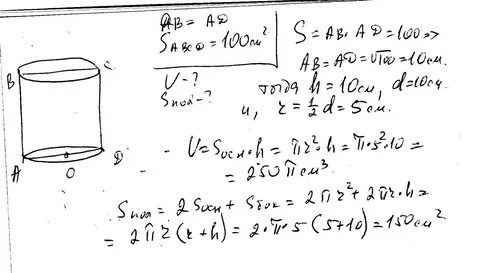 AB = AD
S ABCD = 100 см²
V - ?
Sпол - ?
S = AB · AD = 100 =>
AB = AD = √100 = 10 см.
тогда h = 10 см, d = 10 см
и, r = 1/2 d = 5 см.
B C
A O D
- V = Sосн · h = πr² · h = π · 5² · 10 =
= 250 π см³
Sпол = 2 Sосн + Sбок = 2πr² + 2πr · h =
= 2πr (r + h) = 2 · π · 5 (5 + 10) = 150 см²